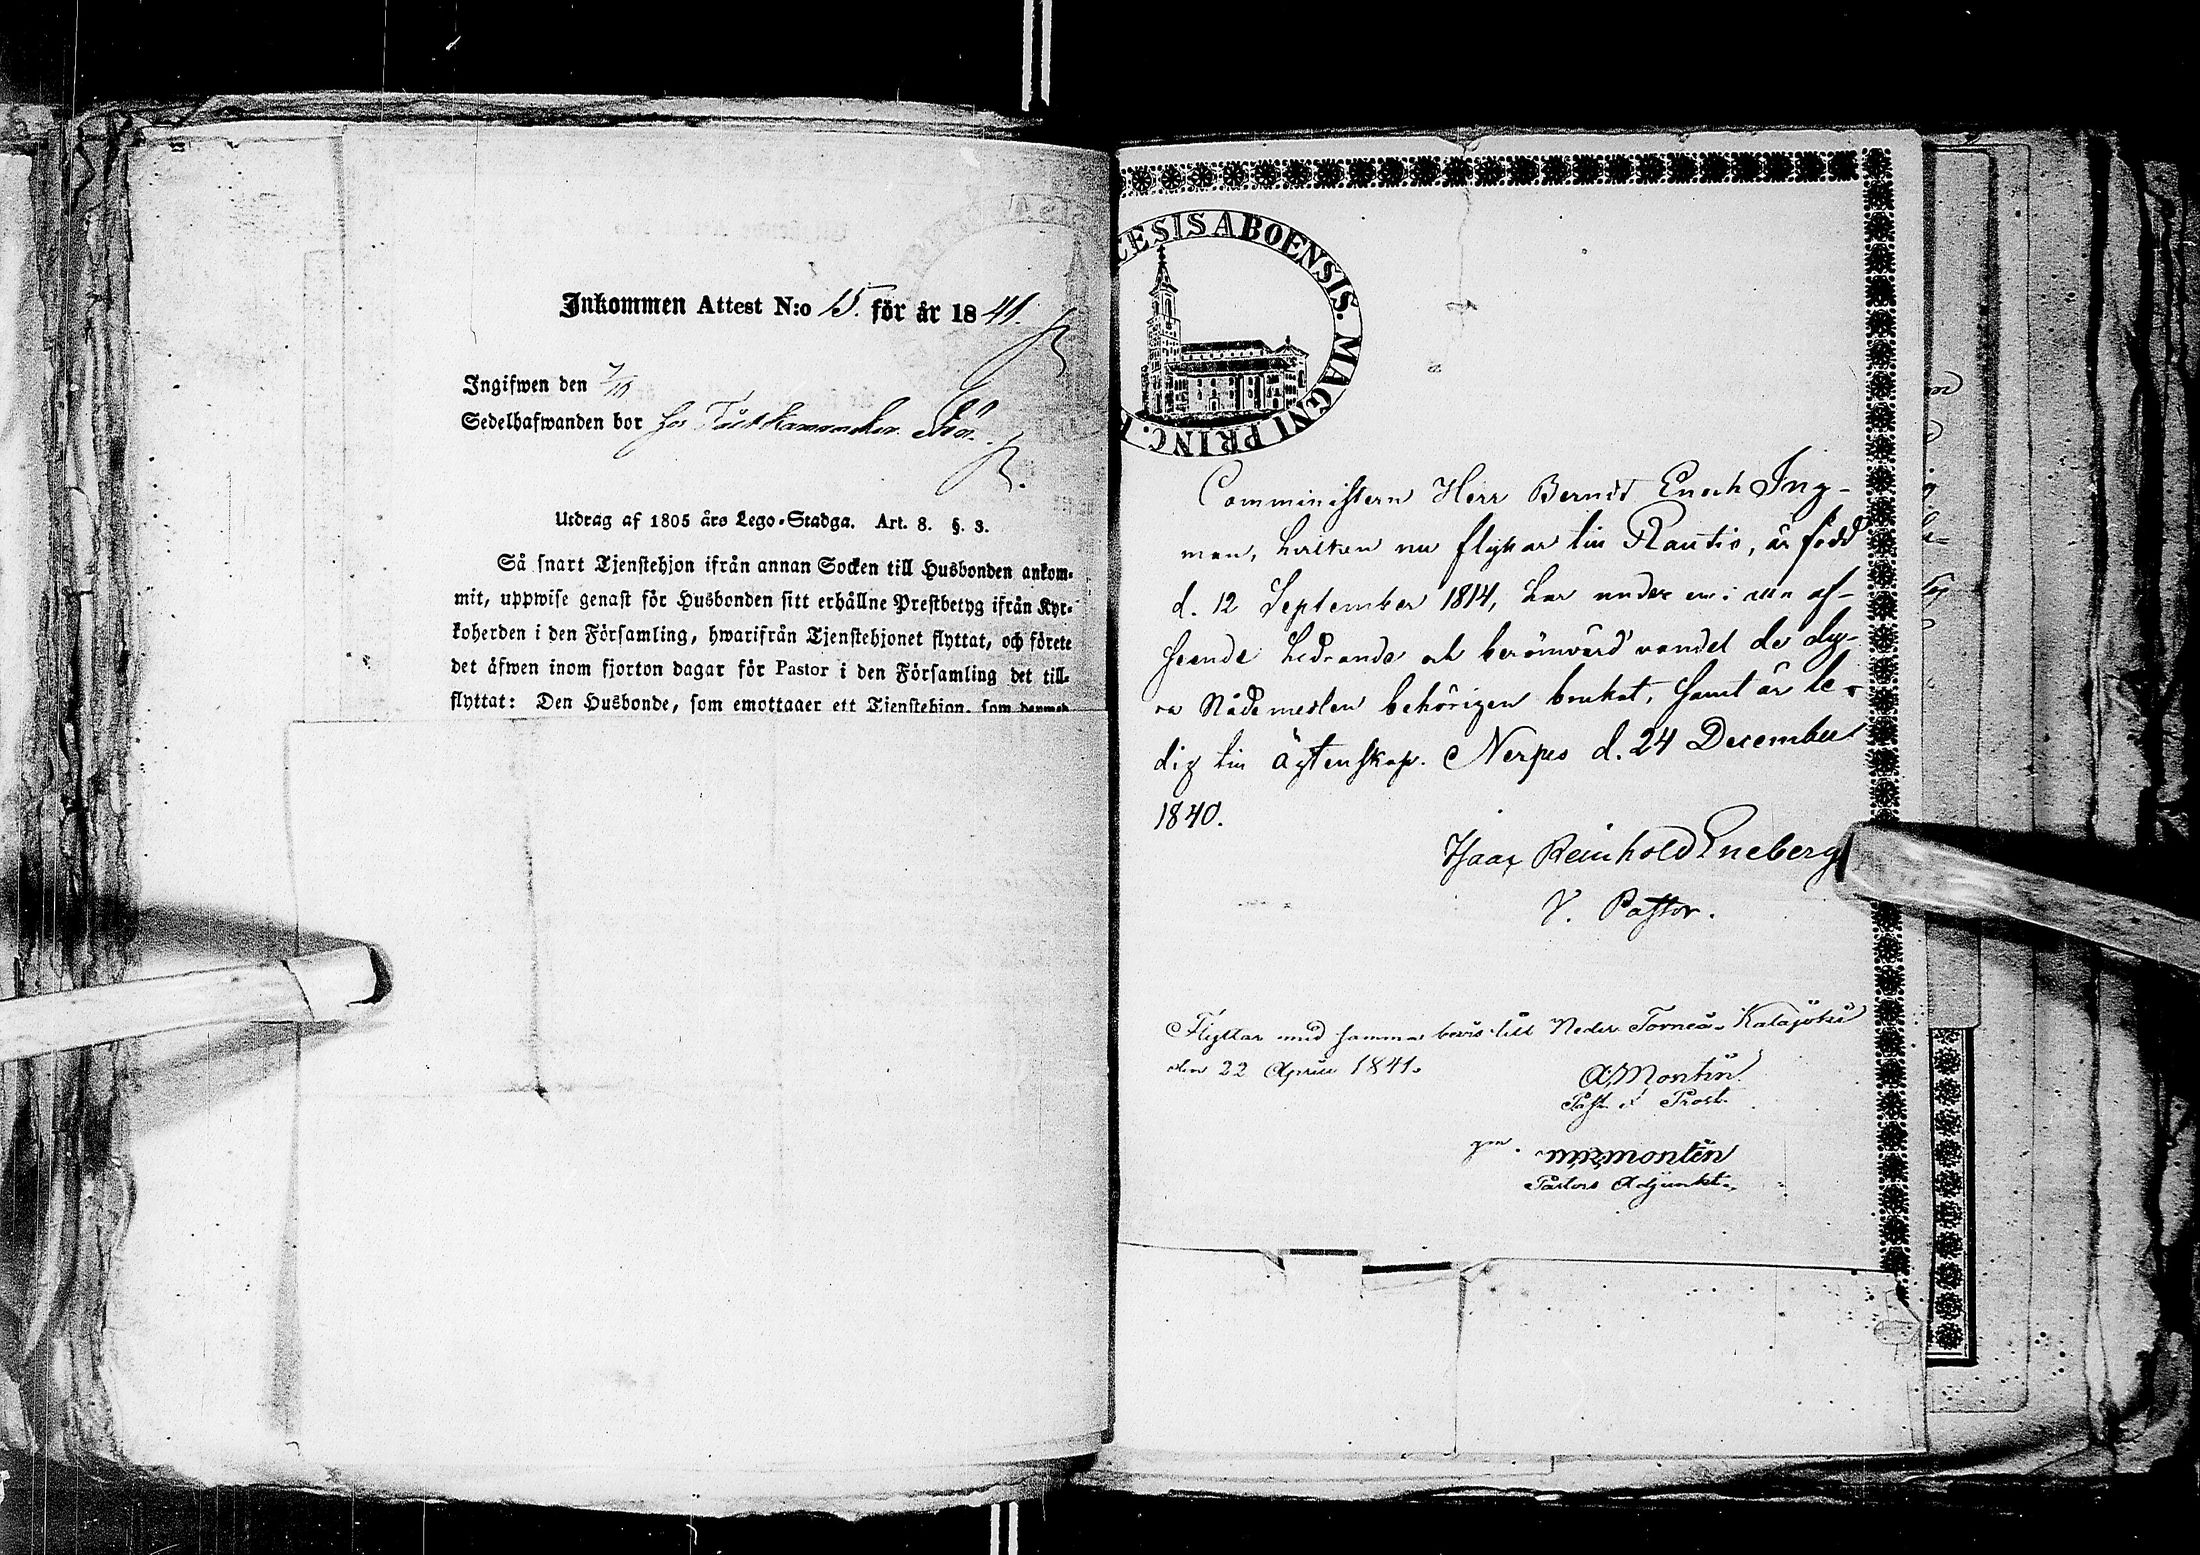 Inkommen Attest N:o 15. för år 1841.
Ingifwen den 7/10
Sedelhafwanden bor hos
Utdrag af 1805 års Lego-Stadga. Art. 8. §. 3.
Så snart Tjenstehjon ifrån annan Socken till Husbonden ankom-
mit, uppwise genast för Husbonden sitt erhållne Prestbetyg ifrån Kyr-
koherden i den Församling, hwarifrån Tjenstehjonet flyttat, och förete
det äfwen inom fjorton dagar för Pastor i den Församling det till-
flyttat: Den Husbonde, som emottager ett Tjenstehjon, som
ESIS ABOENSIS. MAGNI PRINC.
Comministern Herr Berndt Enoch Ing-
man, hvilken nu flyttar till Rautio, är född
d. 12 September 1814, har under en i alla af-
seende hedrande och berömvärd vandel de dy-
ra Nådemedlen behörigen brukat, samt är le-
dig till ägtenskap. Nerpes d. 24 December
1840.
Isaac Reinhold Eneberg
V. Pastor.
Flyttar med samma bevis till Neder Torneå Kalajoki
den 22 April 1841.
A Montin
Past. & Prost.
gm. Montin
Pastors Adjunkt.